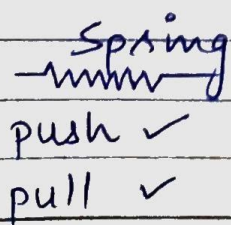 Spring
push ✓
pull ✓